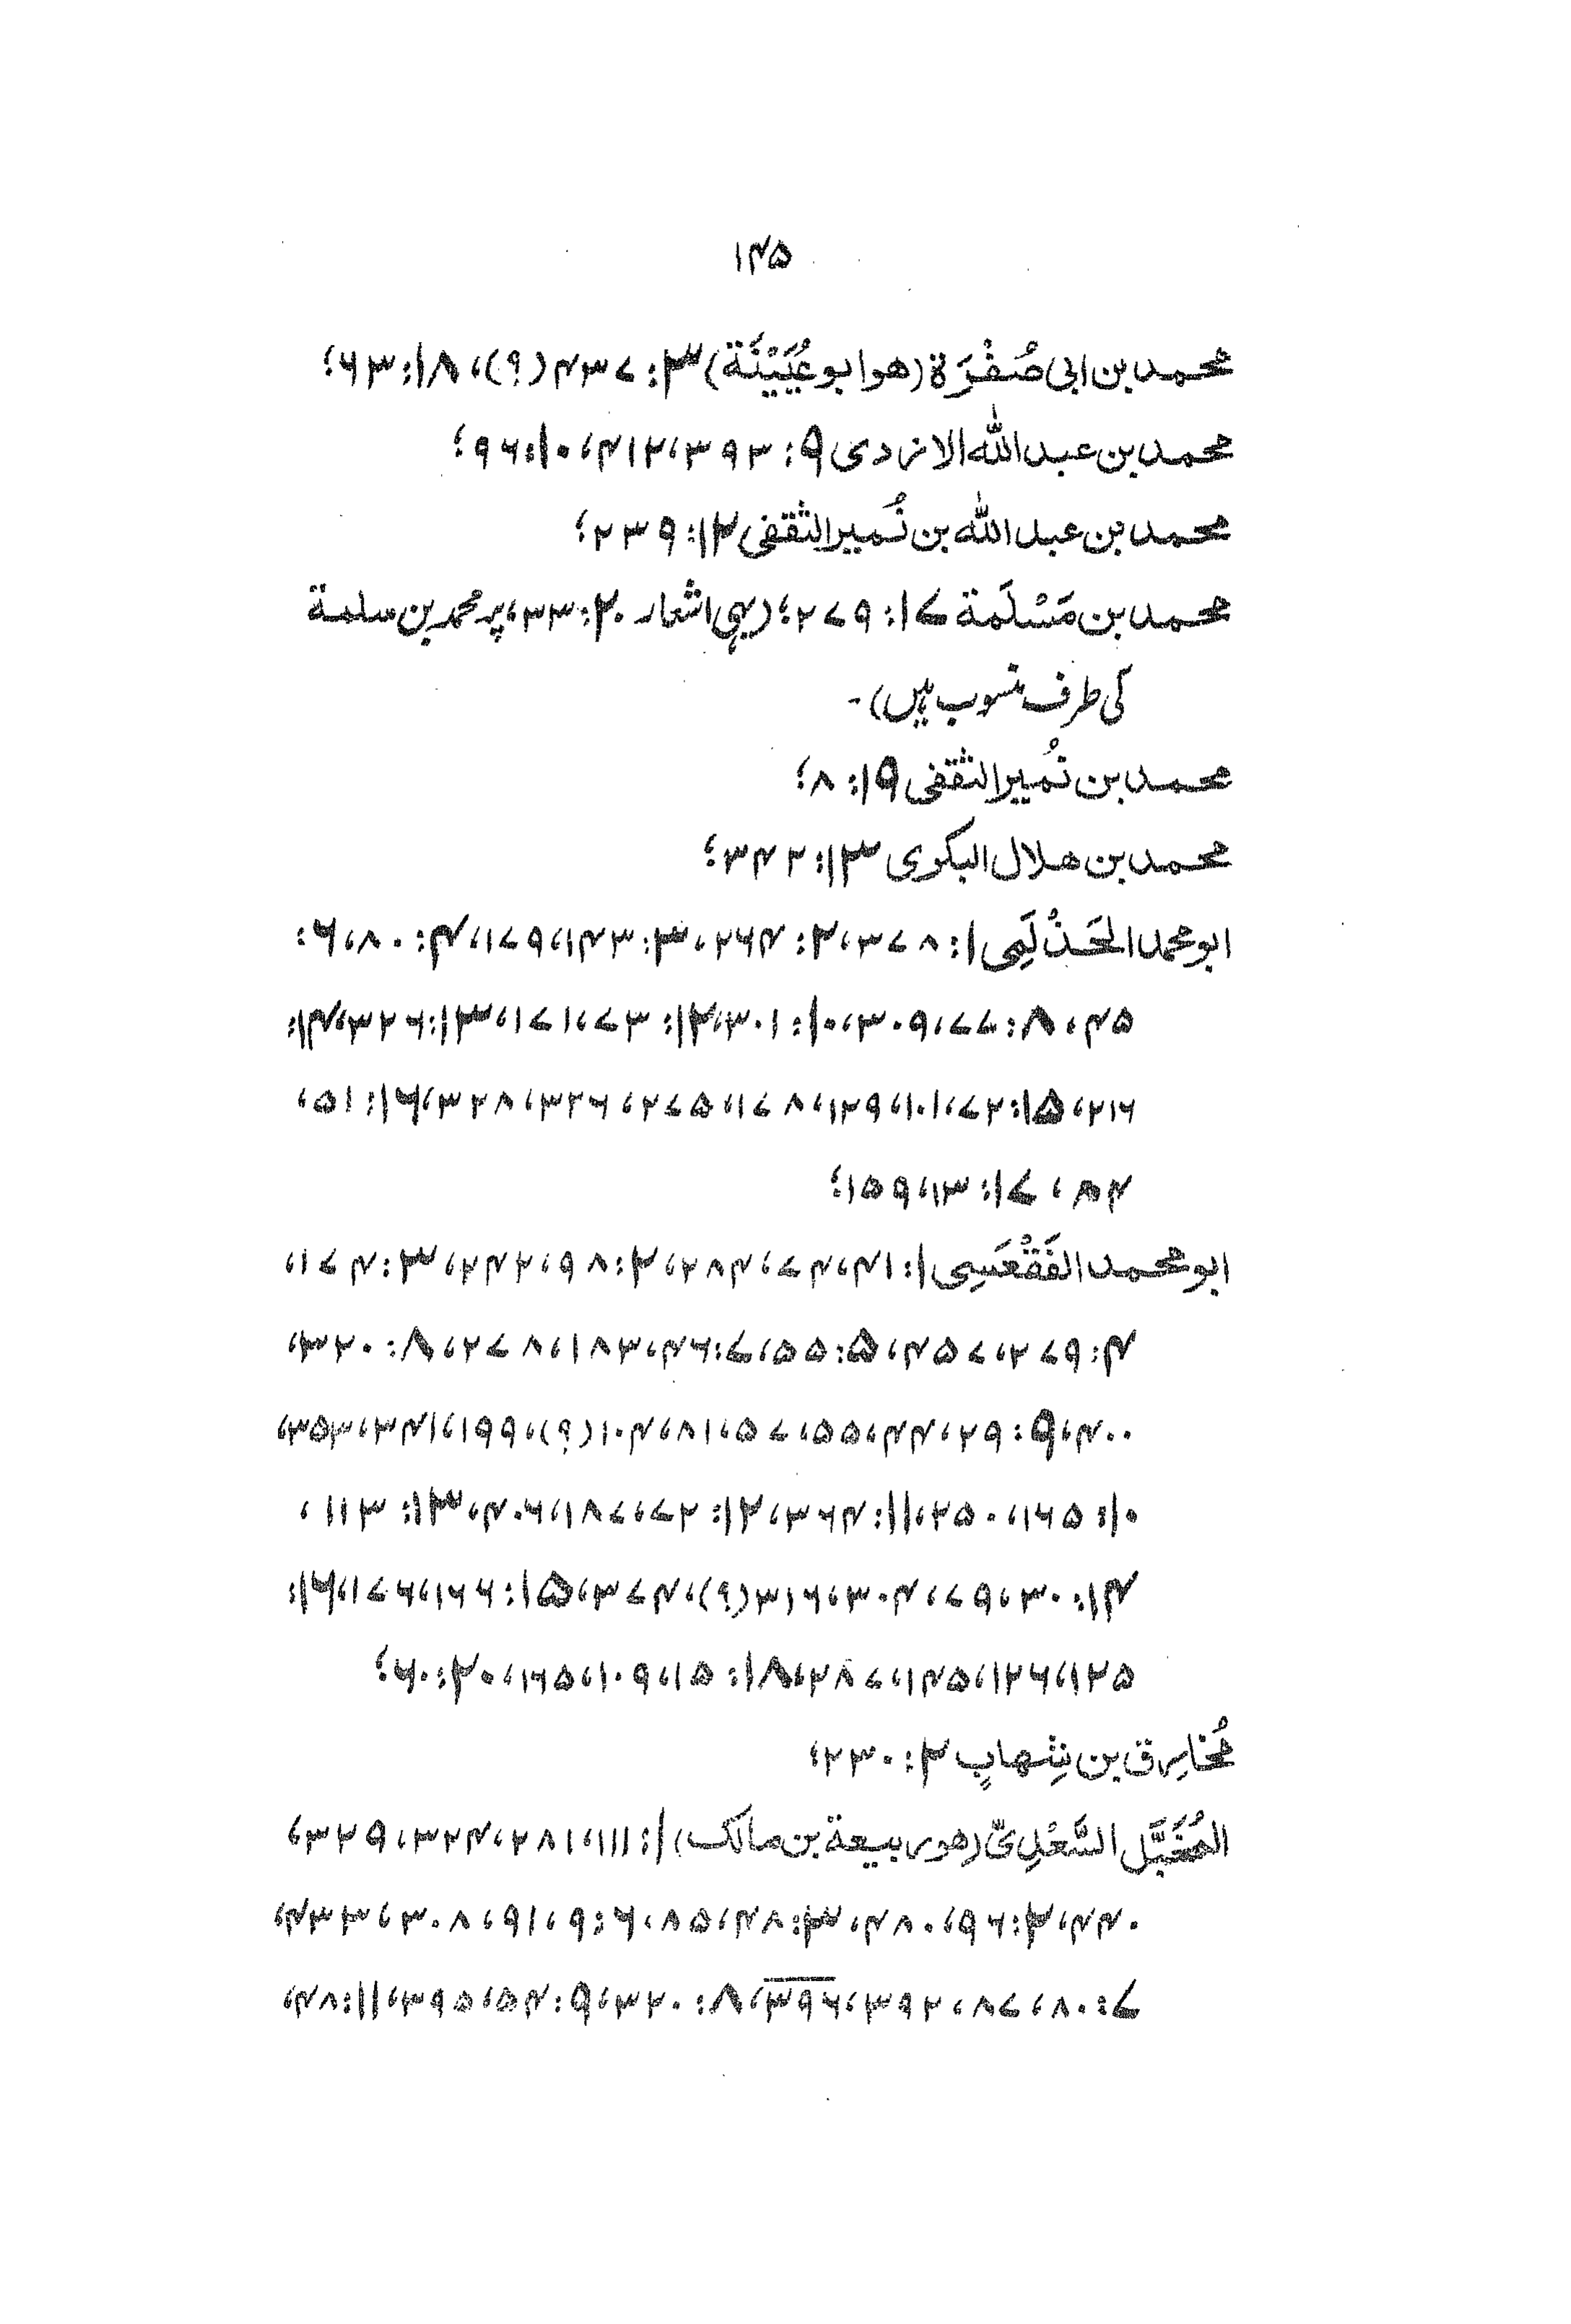 ۱۴۵
محمد بن ابی صُفْرَة (هو ابو عُیَیْنَة) ۳: ۴۳۷ (؟)، ۱۸: ۶۳؛
محمد بن عبد اللّٰه الازدی ۹: ۳۹۳، ۴۱۲، ۱۰: ۹۶؛
محمد بن عبد اللّٰه بن نُمیر الثقفی ۱۲: ۲۳۹؛
محمد بن مَسْلَمة ۱۷: ۲۷۹؛ (یہی اشعار ۲۰: ۳۳، پر محمد بن سلمة
کی طرف منسوب ہیں)۔
محمد بن نُمیر الثقفی ۱۹: ۸؛
محمد بن هلال البکری ۱۳: ۳۴۲؛
ابو محمد الحَذْلَمِی ۱: ۳۷۸، ۲: ۲۶۴، ۳: ۱۴۳، ۱۷۹، ۴: ۸۰، ۶:
۴۵، ۸: ۷۷، ۳۰۹، ۱۰: ۳۰۱، ۱۲: ۷۳، ۱۷۱، ۱۳: ۳۲۶، ۱۴:
۲۱۶، ۱۵: ۷۲، ۱۰۱، ۱۲۹، ۱۷۸، ۲۷۵، ۳۲۶، ۳۲۸، ۱۶: ۵۱،
۸۴، ۱۷: ۱۳، ۱۵۹؛
ابو محمد الفَقْعَسِی ۱: ۴۱، ۷۴، ۲۸۴، ۲: ۹۸، ۲۴۲، ۳: ۱۷۴،
۴: ۲۷۹، ۴۵۷، ۵: ۵۵، ۷: ۴۶، ۱۸۳، ۲۷۸، ۸: ۳۲۰،
۴۰۰، ۹: ۲۹، ۴۴، ۵۵، ۷۵، ۸۱، ۱۰۴ (؟)، ۱۹۹، ۳۴۱، ۳۵۳،
۱۰: ۱۶۵، ۲۵۰، ۱۱: ۳۶۴، ۱۲: ۷۲، ۱۸۷، ۴۰۶، ۱۳: ۱۱۳،
۱۴: ۳۰، ۷۹، ۳۰۴، ۳۱۶ (؟)، ۳۷۴، ۱۵: ۱۶۶، ۱۷۶، ۱۶:
۱۲۵، ۱۲۶، ۱۴۵، ۲۸۷، ۱۸: ۱۵، ۱۰۹، ۱۶۵، ۲۰: ۶۰؛
مُخارِق بن شِهابٍ ۲: ۲۳۰؛
المُخَبَّل السَّعْدِیّ (هو ربیعة بن مالک) ۱: ۱۱۱، ۲۸۱، ۳۲۴، ۳۲۹،
۴۴۰، ۲: ۹۶، ۴۸۰، ۳: ۴۸، ۸۵، ۶: ۹، ۹۱، ۳۰۸، ۴۳۳،
۷: ۸۰، ۸۷، ۳۹۲، ۳۹۶، ۸: ۳۲۰، ۹: ۵۴، ۳۹۵، ۱۱: ۴۸،